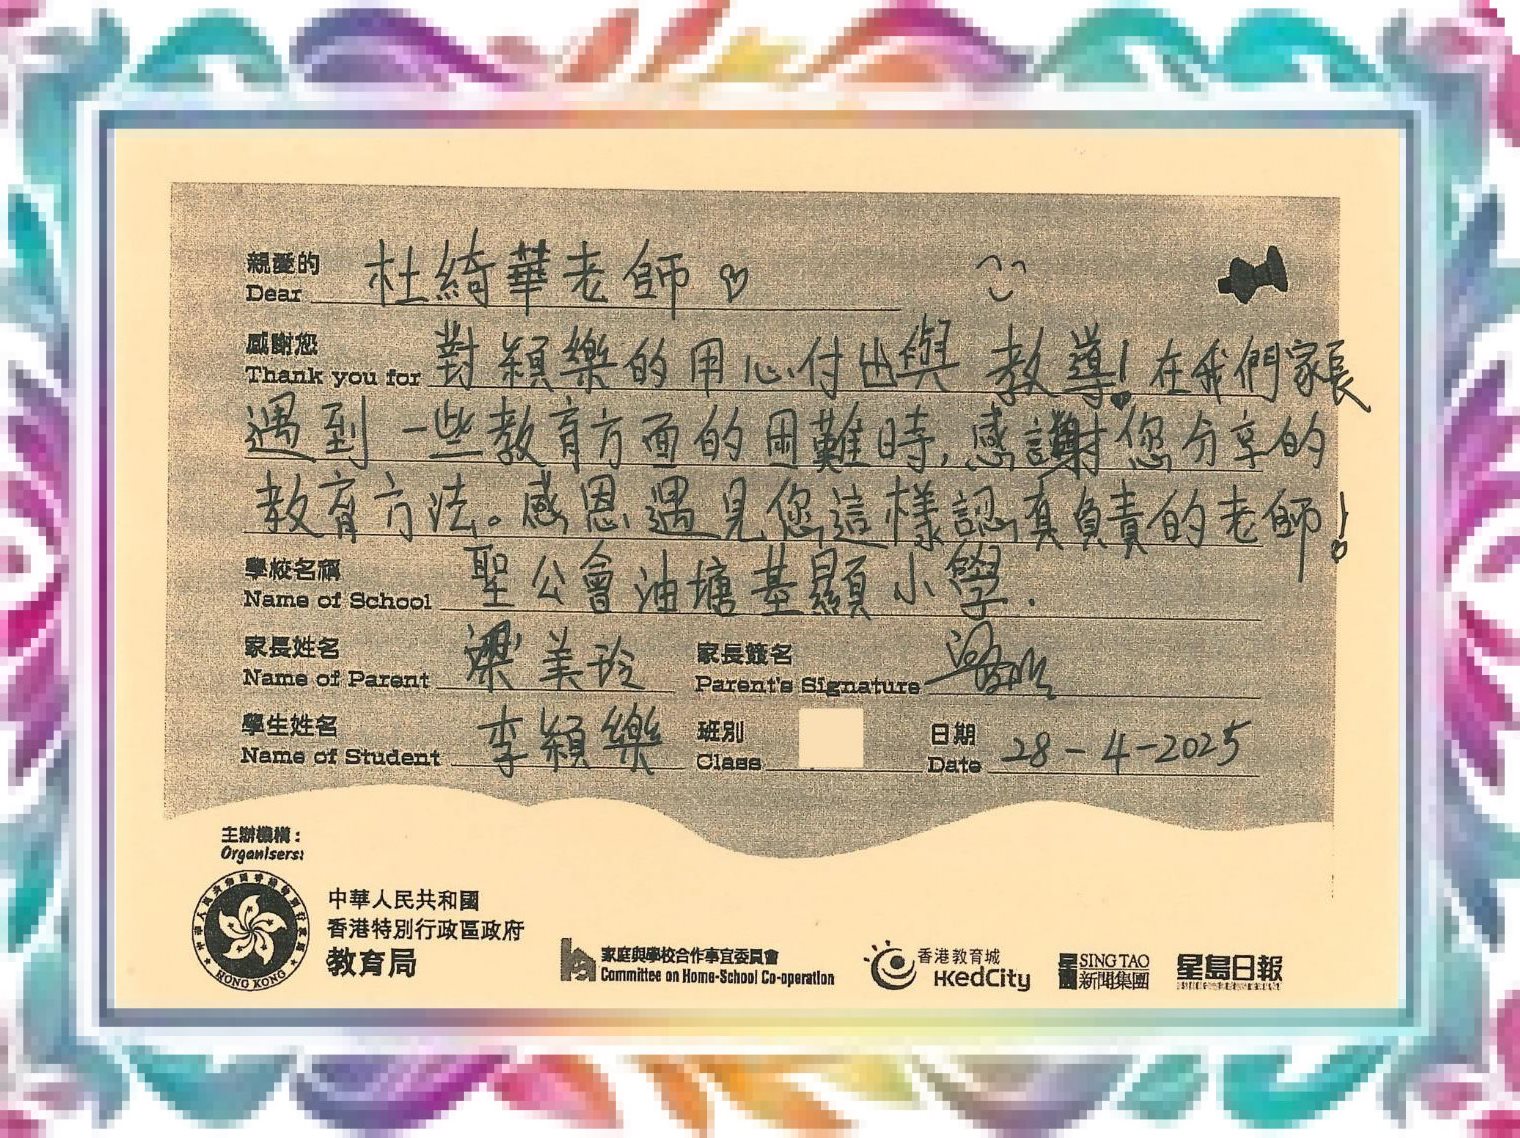 親愛的
Dear 杜綺華老師
感謝您
Thank you for 對穎樂的用心付出與 教導！在我們家長
遇到一些教育方面的困難時，感謝您分享的
教育方法。感恩遇見您這樣認真負責的老師！
學校名稱
Name of School 聖公會油塘基顯小學.
家長姓名 家長簽名
Name of Parent 梁美玲 Parent's Signature
學生姓名 班別 日期
Name of Student 李穎樂 Class Date 28-4-2025
主辦機構：
Organisers:
中華人民共和國
香港特別行政區政府
教育局
HONG KONG
家庭與學校合作事宜委員會
Committee on Home-School Co-operation
香港教育城
HKedCity
星島 SING TAO
新聞集團
星島日報